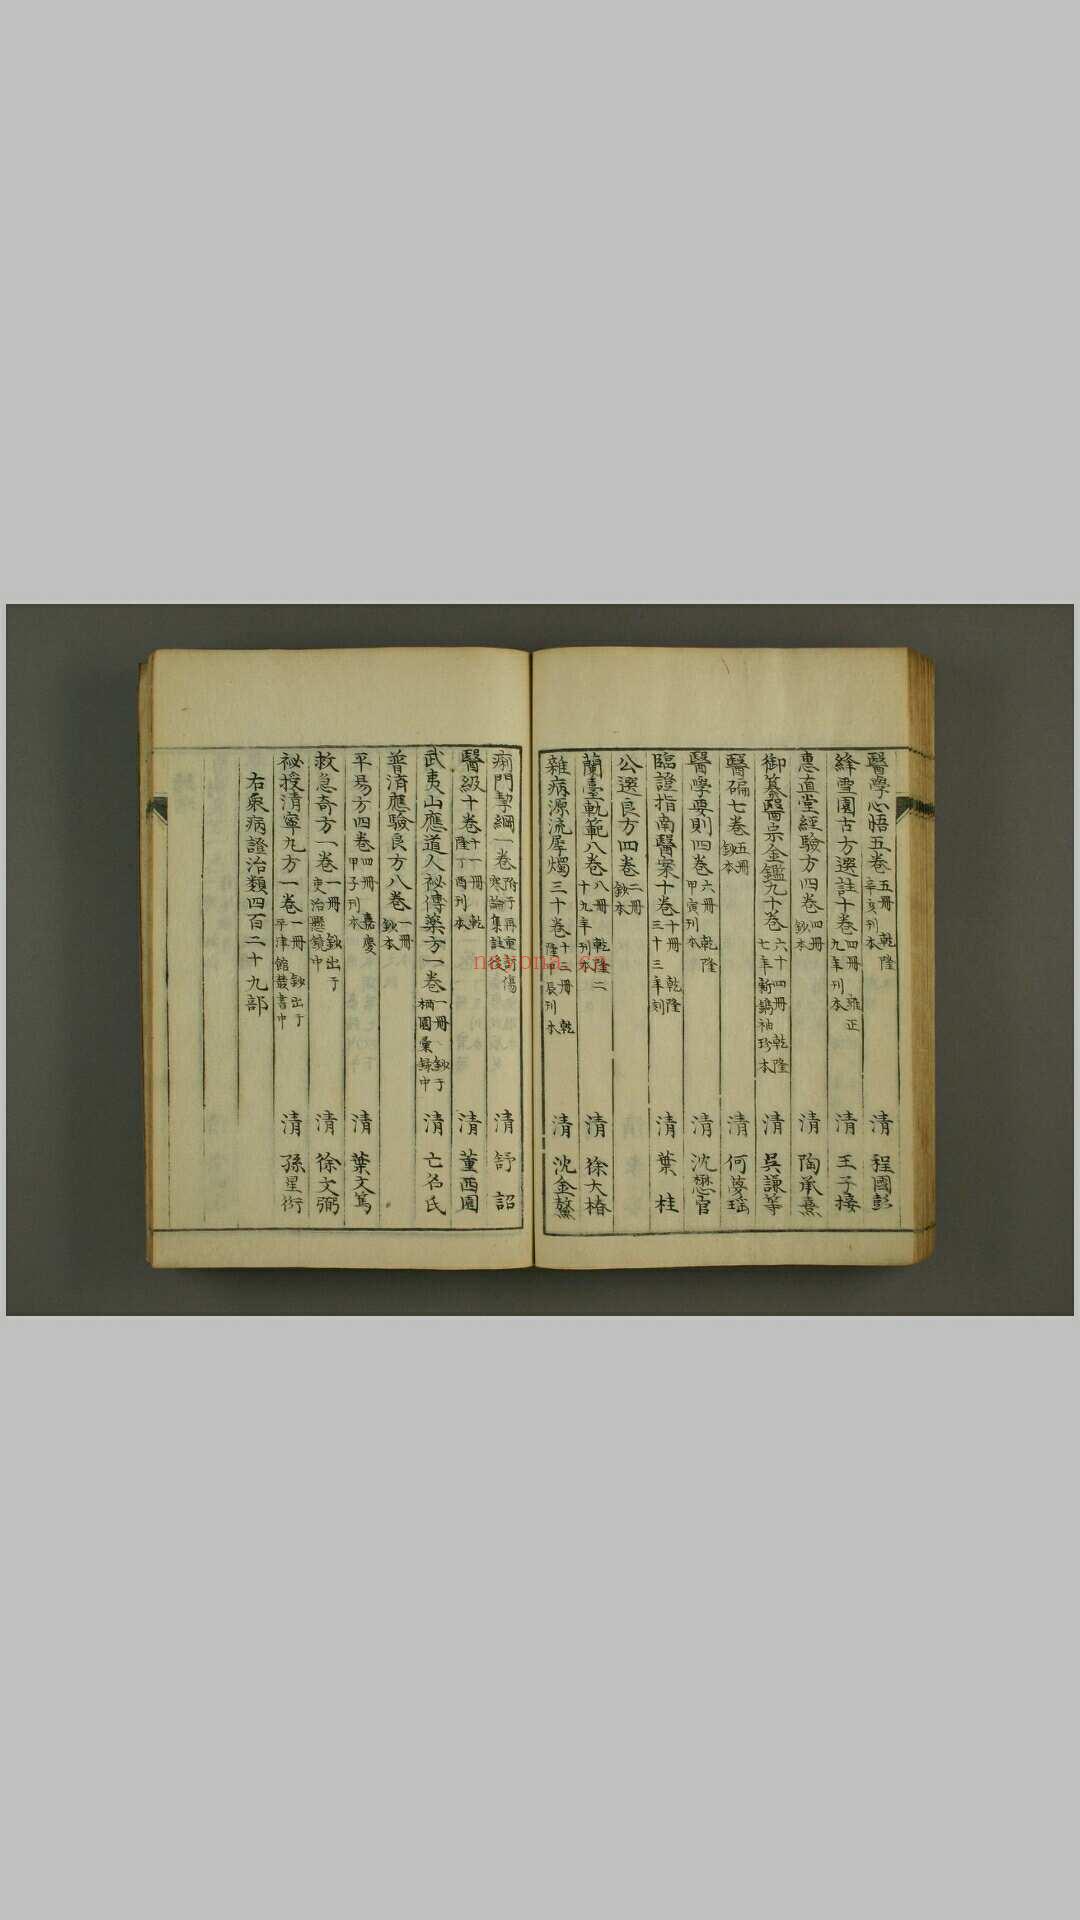 醫學心悟五卷 五冊 乾隆辛亥刊本 清 程國彭
絳雪園古方選註十卷 四冊 雍正九年刊本 清 王子接
惠直堂經驗方四卷 四冊 鈔本 清 陶承熹
御纂醫宗金鑑九十卷 六十四冊 乾隆七年新鐫袖珍本 清 吳謙等
醫碥七卷 五冊 鈔本 清 何夢瑤
醫學要則四卷 六冊 乾隆甲寅刊本 清 沈懋官
臨證指南醫案十卷 十冊 乾隆三十三年刻 清 葉桂
公選良方四卷 二冊 鈔本
蘭臺軌範八卷 八冊 乾隆二十九年刊本 清 徐大椿
雜病源流犀燭三十卷 十二冊 乾隆甲辰刊本 清 沈金鰲
痢門挈綱一卷 附于再重訂傷寒論集註後 清 舒詔
醫級十卷 十一冊 乾隆丁酉刊本 清 董西園
武夷山應道人祕傳藥方一卷 一冊 鈔于栖園彙錄中 清 亡名氏
普済應驗良方八卷 一冊 鈔本
平易方四卷 四冊 嘉慶甲子刊本 清 葉文篤
救急奇方一卷 一冊 鈔出于吏治懸鏡中 清 徐文弼
祕授清寧丸方一卷 一冊 鈔出于平津館叢書中 清 孫星衍
右眾病證治類四百二十九部